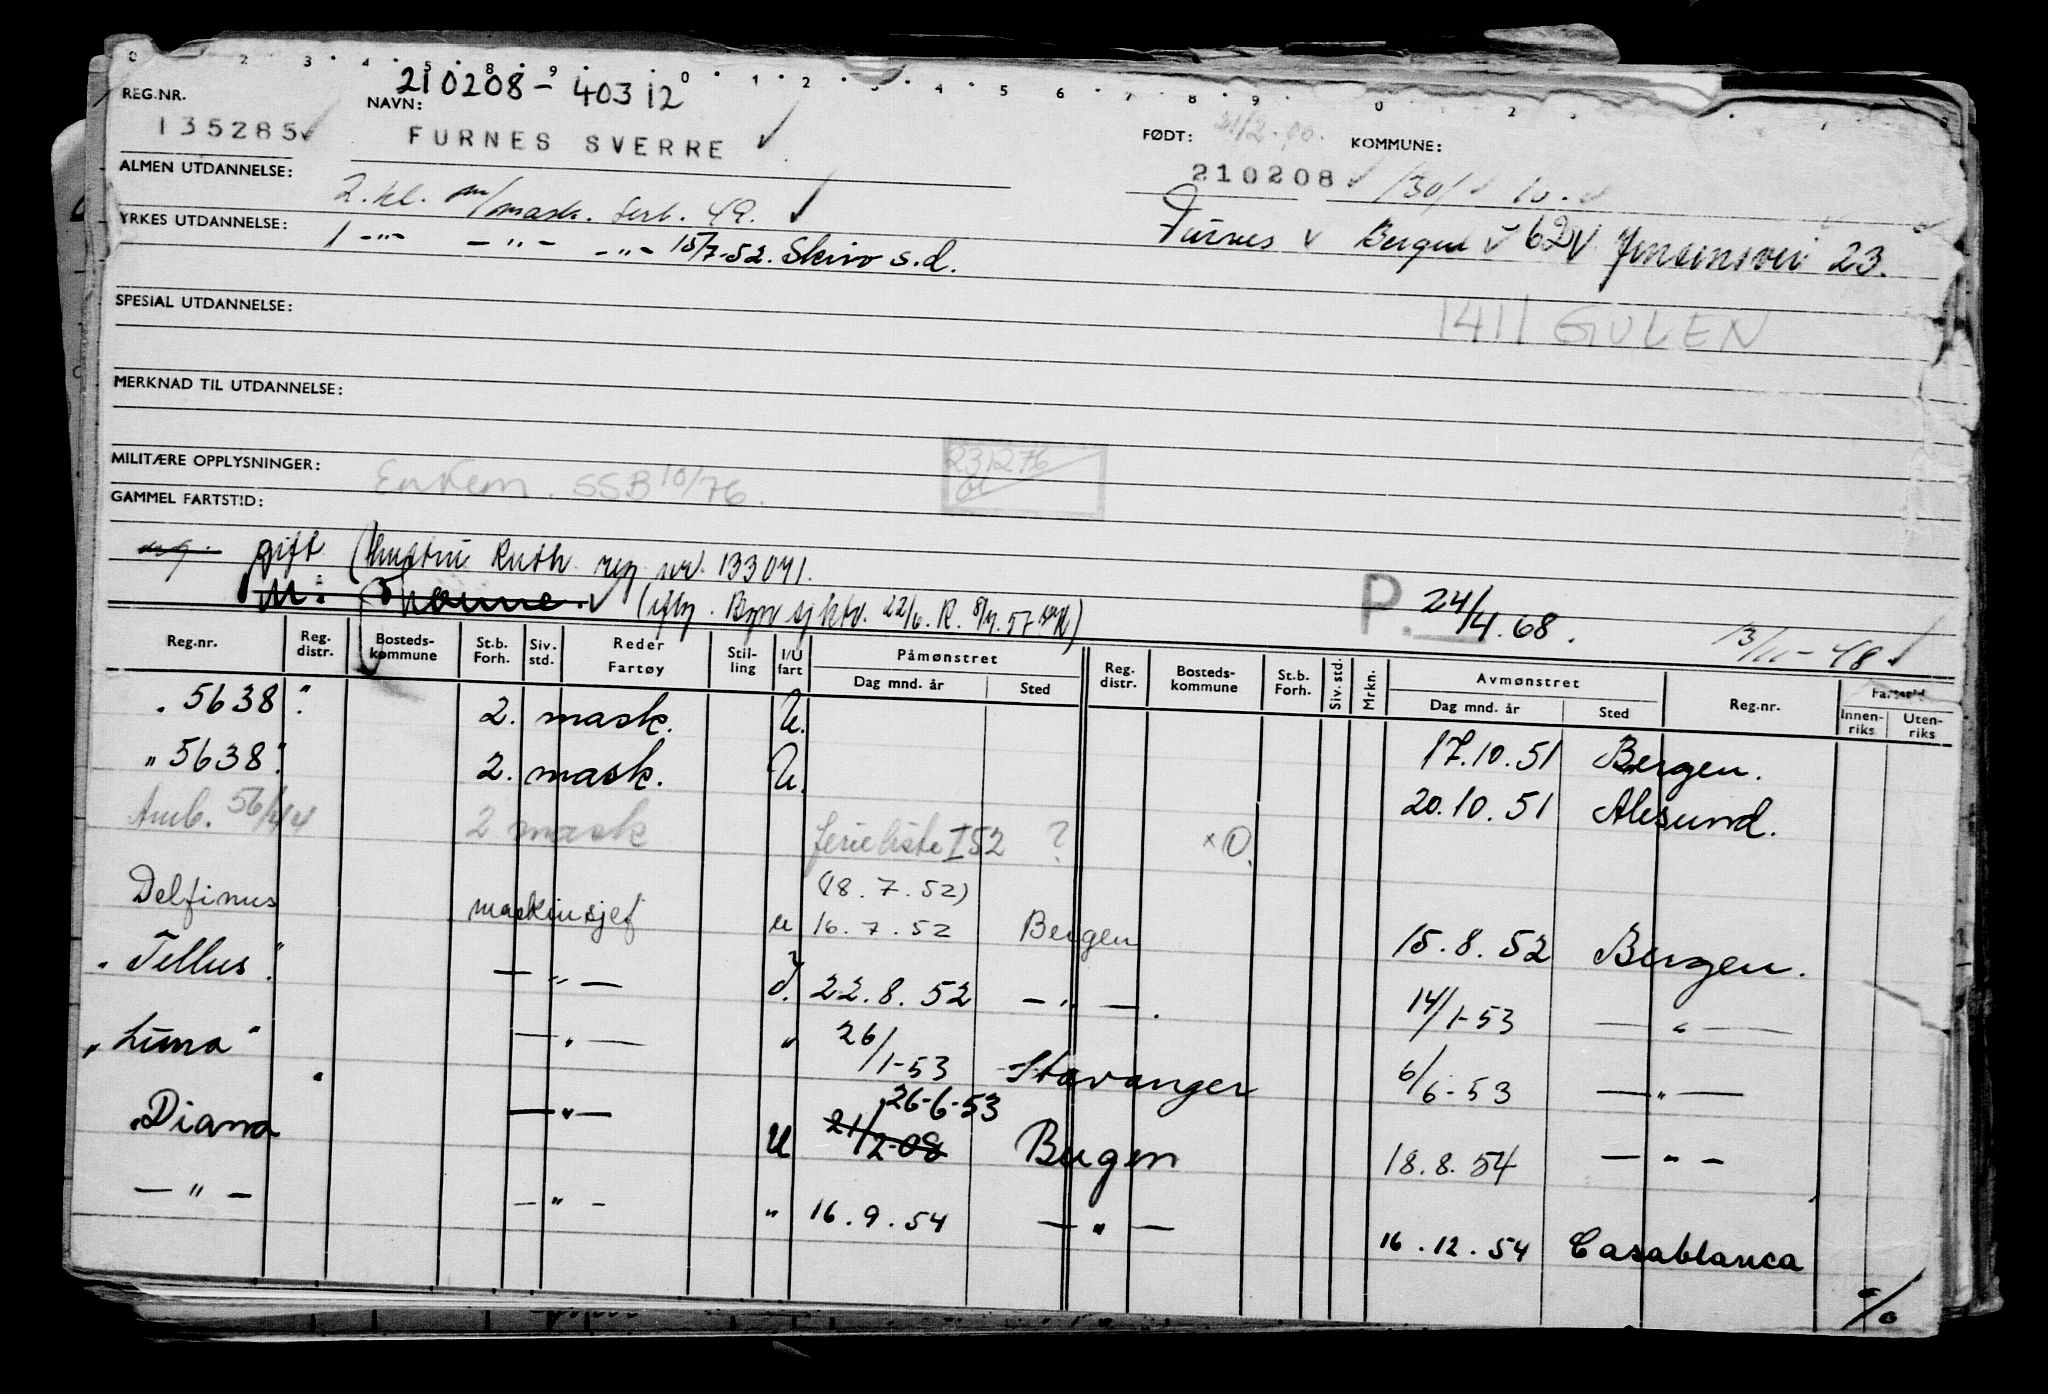 0 2 3 4 5 8 9 0 1 2 3 4 5 6 7 8 9 0
210208-40312
REG.NR. NAVN: FØDT: KOMMUNE:
135285 FURNES SVERRE 210208
ALMEN UTDANNELSE:
2. kl. m/mask. sert. 49.
YRKES UTDANNELSE:
1 -"- -"- -"- 15/7-52. Skiro s.d.
Furnes Bergen 62 Jensensvei 23.
SPESIAL UTDANNELSE:
1411 GULEN
MERKNAD TIL UTDANNELSE:
MILITÆRE OPPLYSNINGER:
SSB 10/76.
231276
GAMMEL FARTSTID:
ug. gift (hustru Ruth reg nr. 133041.
M: (iflg. Bgn sj ktr. 22/6. K. 8/7.57)
P. 24/4.68.
13/11-48
Reg.nr. Reg. distr. Bosteds-kommune St.b. Forh. Siv. std. Reder Fartøy Stil-ling I/U fart Påmønstret Dag mnd. år Sted Reg. distr. Bosteds-kommune St.b. Forh. Siv. std. Mrkn. Avmønstret Dag mnd. år Sted Reg.nr. Fartstid Innen-riks Uten-riks
" 5638 " 2. mask. U. 17.10.51 Bergen.
" 5638 " 2. mask. U. 20.10.51 Ålesund.
Amb. 56/44 2 mask ferieliste I 52 ? x O.
(18.7.52)
Delfinus maskinsjef u 16.7.52 Bergen 15.8.52 Bergen.
"Tellus" — " — I. 22.8.52 — " —. 14/1-53 — " —
"Luna" — " — " 26/1-53 Stavanger 6/6-53 — " —
26-6-53
"Diana" — " — U 21/2-08 Bergen 18.8.54 — " —
— " — — " — " 16.9.54 — " — 16.12.54 Casablanca
%